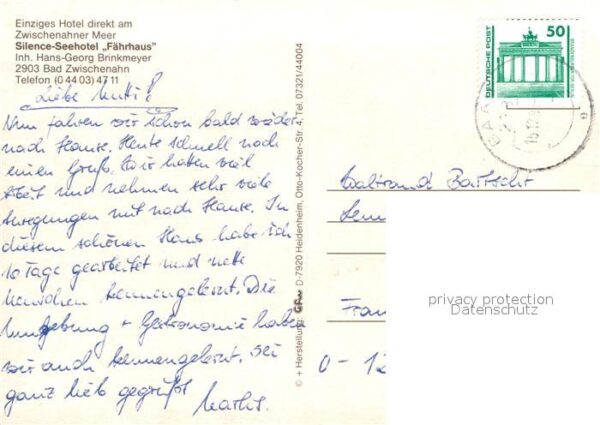 Einziges Hotel direkt am
Zwischenahner Meer
Silence-Seehotel „Fährhaus"
Inh. Hans-Georg Brinkmeyer
2903 Bad Zwischenahn
Telefon (0 44 03) 47 11
Liebe Mutti!
Nun fahren wir schon bald wieder
nach Hause. Heute schnell noch
einen Gruß. Wir hatten viel
Arbeit und nehmen sehr viele
Anregungen mit nach Hause. In
diesem schönen Haus habe ich
10 Tage gearbeitet und nette
Menschen kennengelernt. Die
Umgebung + Gastronomie haben
wir auch kennengelernt. Sei
ganz lieb gegrüßt
© + Herstellung: D-7920 Heidenheim, Otto-Kocher-Str. 4, Tel. 07321/44004
DEUTSCHE POST
50
Waltraud
privacy protection
Datenschutz
O-12